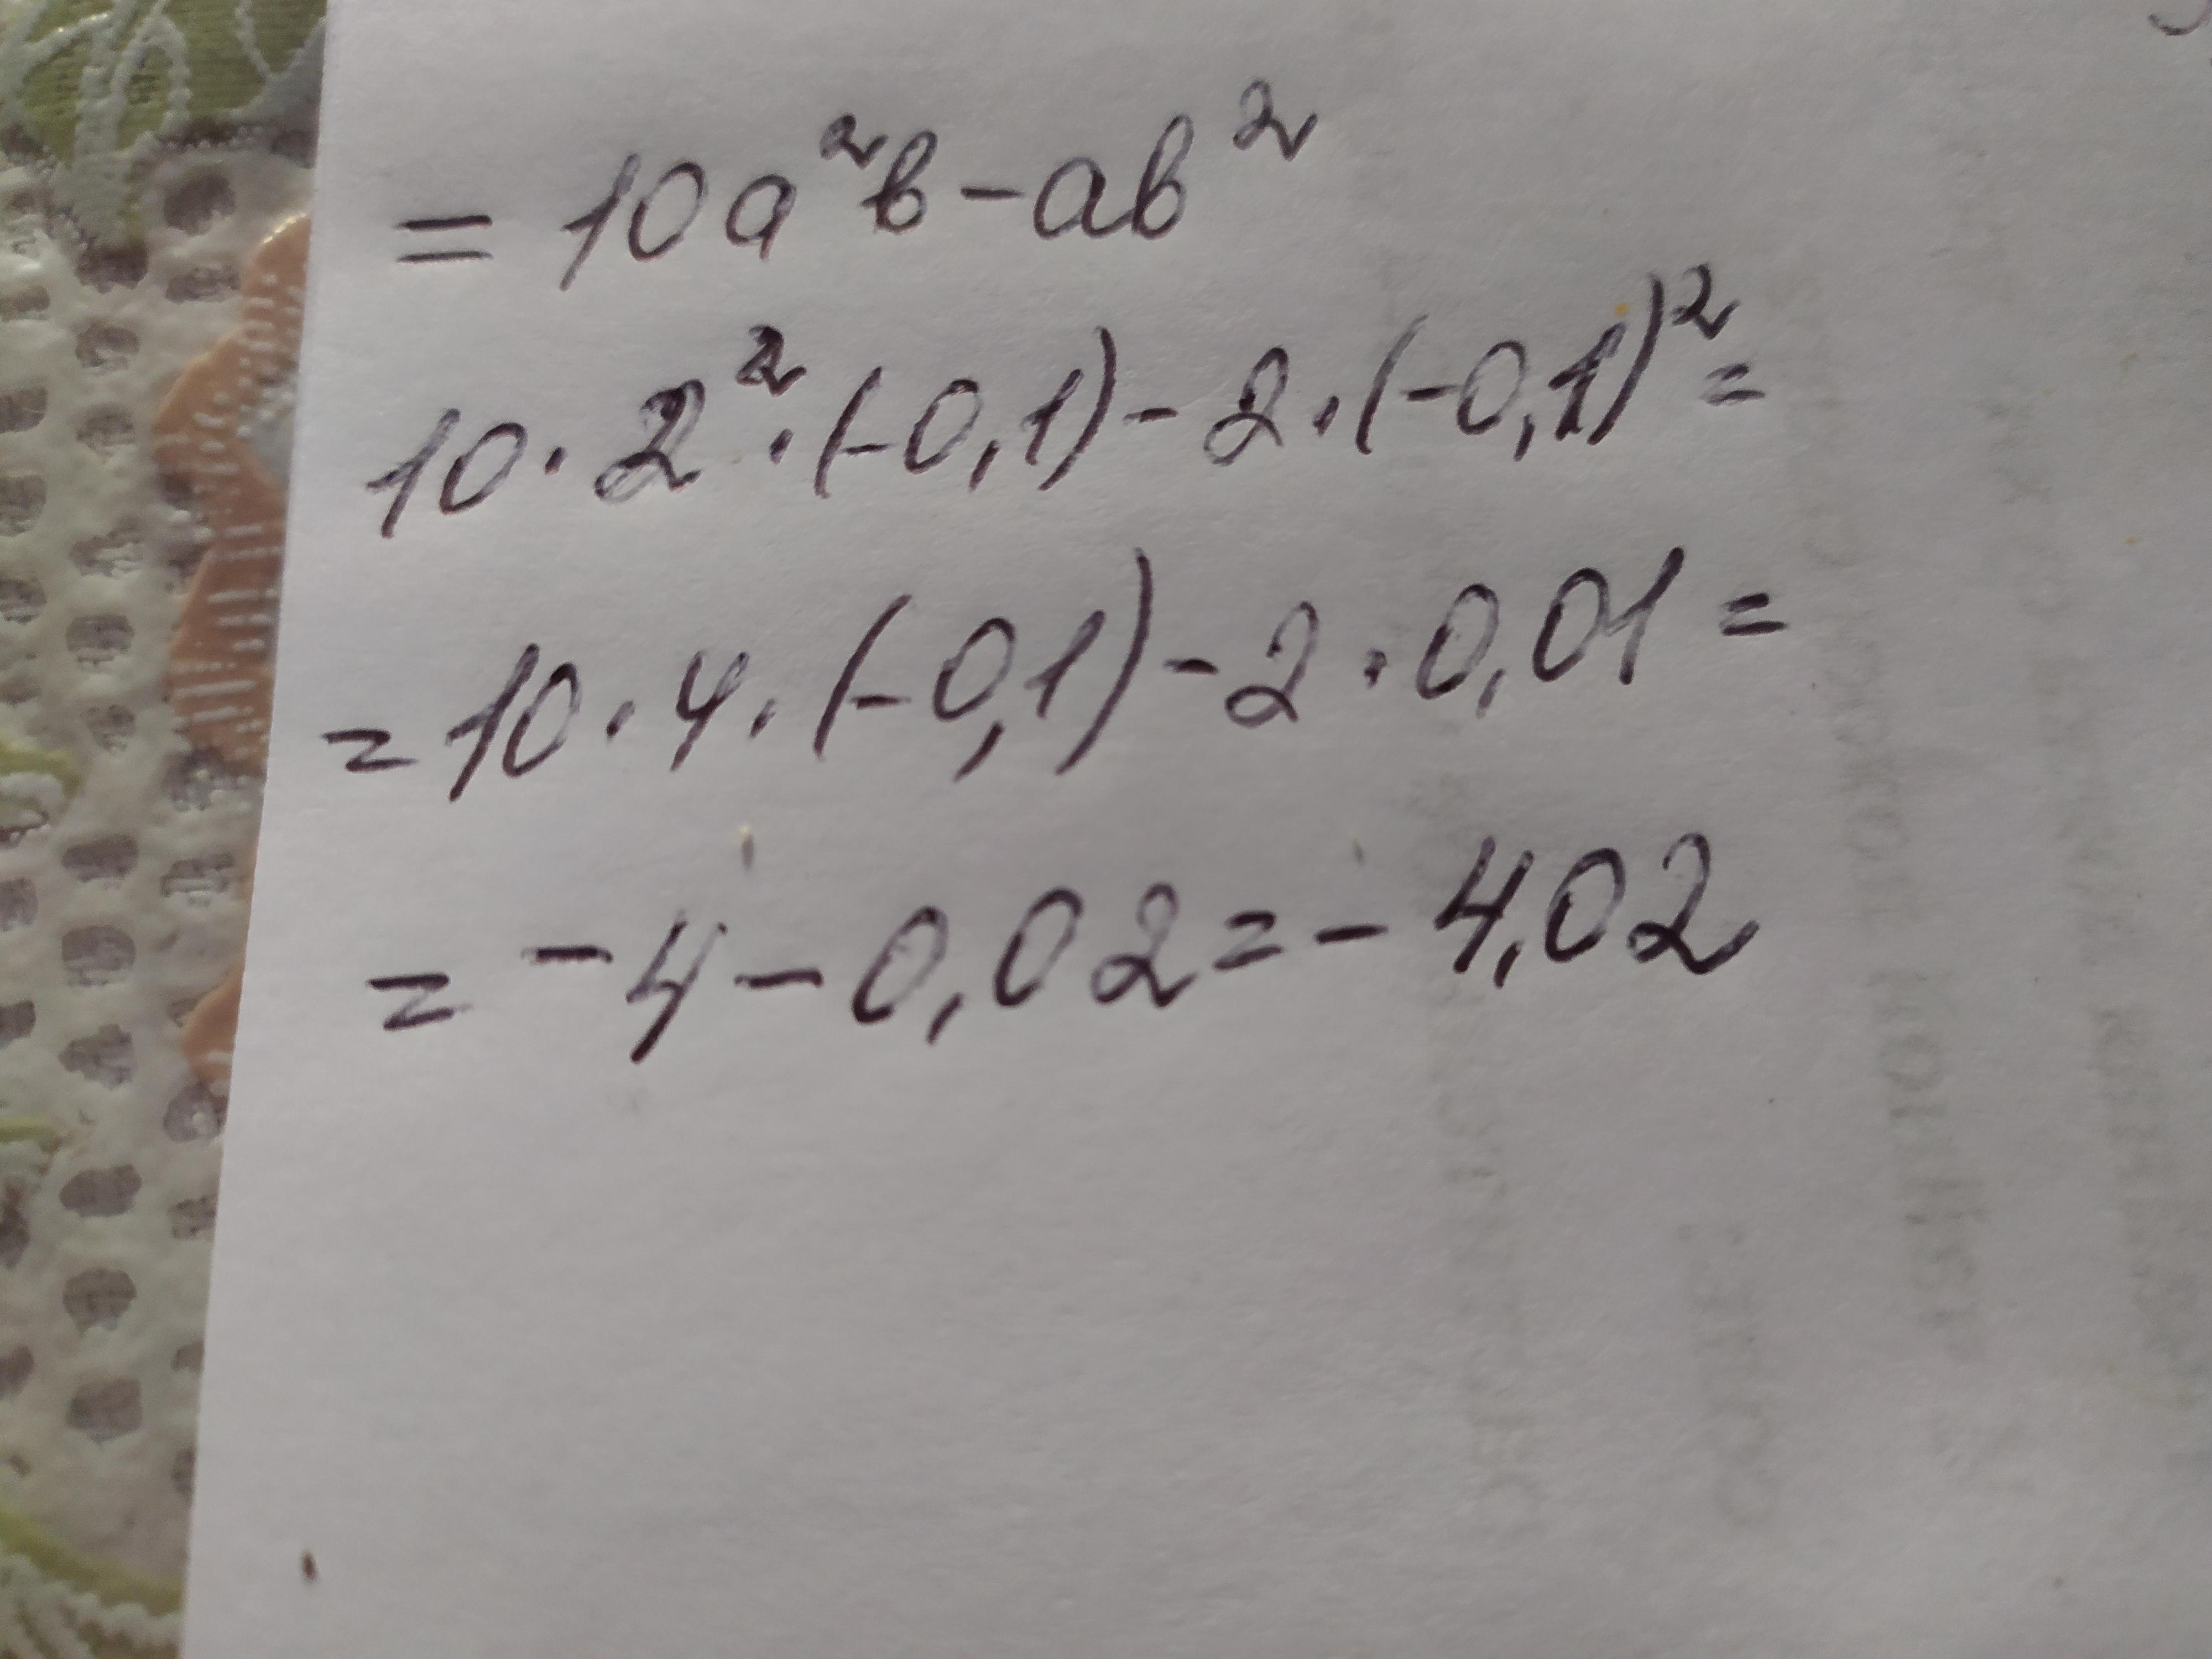 = 10a²b - ab²
10 · 2² · (-0,1) - 2 · (-0,1)² =
= 10 · 4 · (-0,1) - 2 · 0,01 =
= -4 - 0,02 = - 4,02